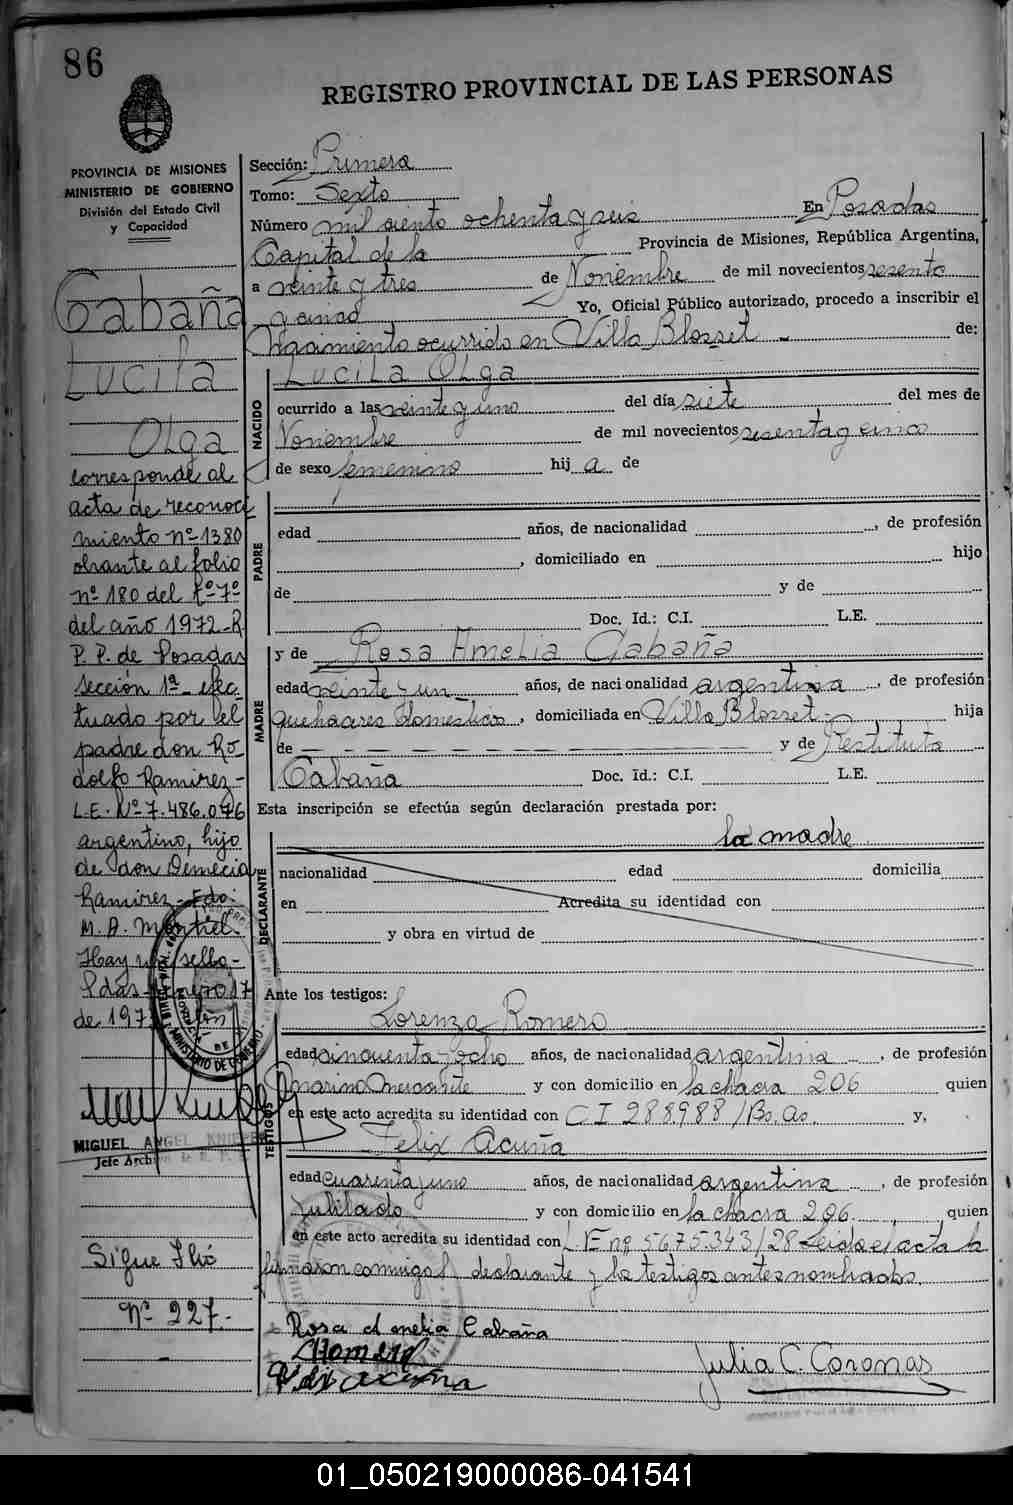 86
REGISTRO PROVINCIAL DE LAS PERSONAS
PROVINCIA DE MISIONES
MINISTERIO DE GOBIERNO
División del Estado Civil
y Capacidad
Cabaña
Lucila
Olga
corresponde al
acta de reconoci
miento nº 1380
obrante al folio
nº 180 del tº 7º
del año 1972 - R.
P. P. de Posadas
sección 1ª - efec
tuado por el
padre don Ro
dolfo Ramirez -
L.E. Nº 7.486.076
argentino, hijo
de don Demecia
Ramirez - Fdo:
M. A. Montiel.
Hay un sello -
Pdas - Enero 17
de 197
MIGUEL ANGEL
Jefe Archivo de R. P.
Sigue Flió
Nº 227.-
Sección: Primera
Tomo: Sexto
Número mil siento ochenta y seis En Posadas
Capital de la Provincia de Misiones, República Argentina,
a veinte y tres de Noviembre de mil novecientos sesenta
y cinco Yo, Oficial Público autorizado, procedo a inscribir el
Nacimiento ocurrido en Villa Blosset - de:
NACIDO
Lucila Olga
ocurrido a las veinte y uno del día siete del mes de
Noviembre de mil novecientos sesenta y cinco
de sexo femenino hij a de
PADRE
edad años, de nacionalidad , de profesión
, domiciliado en hijo
de y de
Doc. Id.: C.I. L.E.
MADRE
y de Rosa Amelia Cabaña
edad veinte y un años, de nacionalidad argentina , de profesión
quehaceres domesticos , domiciliada en Villa Blosset - , hija
de — — — — — — — — y de Restituta
Cabaña Doc. Id.: C.I. L.E.
Esta inscripción se efectúa según declaración prestada por:
la madre
DECLARANTE
nacionalidad edad domicilia
en Acredita su identidad con
y obra en virtud de
Ante los testigos:
TESTIGOS
Lorenzo Romero
edad cincuenta y ocho años, de nacionalidad argentina , de profesión
Marino Mercante y con domicilio en la chacra 206 quien
en este acto acredita su identidad con C I 288988 / Bs. As. y,
Felix Acuña
edad cuarenta y uno años, de nacionalidad argentina , de profesión
Jubilado y con domicilio en la chacra 206 quien
en este acto acredita su identidad con L E nº 5675343 / 28 Leida el acta la
firmaron conmigo l declarante y los testigos antes nombrados.
Rosa Amelia Cabaña
LRomero
Felix Acuña
Julia C. Coronas
01_050219000086-041541